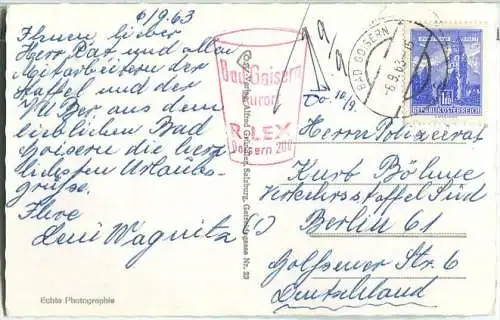 6/9.63
Ihnen lieber
Herr Rat und allen
Mitarbeitern der
Staffel und der
VU Ber aus dem
lieblichen Bad
Goisern die herz
lichsten Urlaubs-
grüsse.
Ihre
Leni Wagnitz
Echte Photographie
Bad Goisern
Kurort
RILEX
Goisern 200
Alfred Gründler, Salzburg, Nr. 23
9/9
10/9.
BAD GOISERN
-6.9.63
REPUBLIK ÖSTERREICH
Herrn Polizeirat
Kurt Böhme
Verkehrsstaffel Süd
(1) Berlin 61
Golssener Str. 6
Deutschland